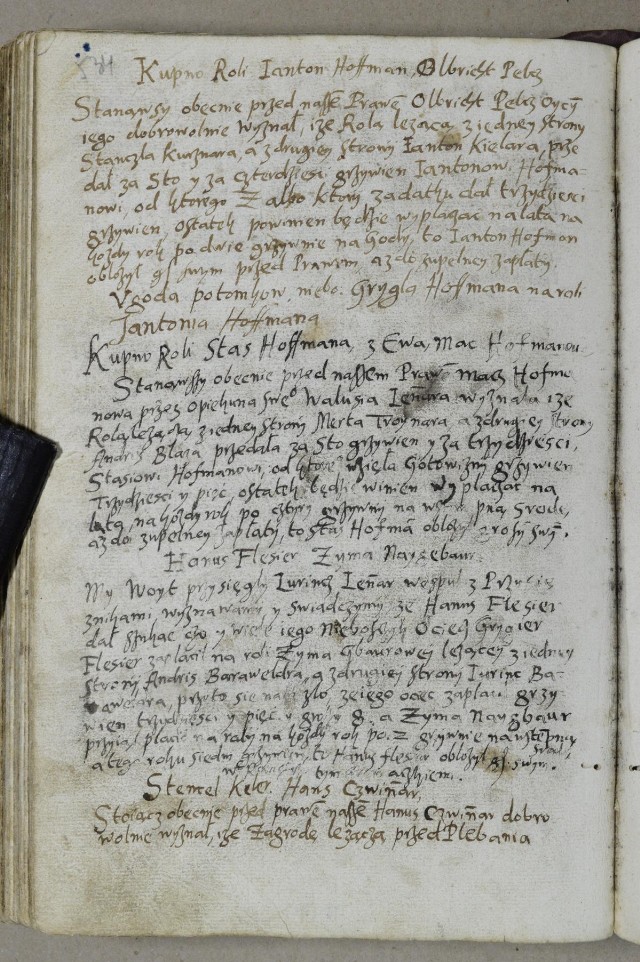 Kupno Roli Ianton Hoffman, Olbricht Pelcz
Stanąwsy obecnie przed nasse Prawẽ Olbricht Pelcz
iego dobrowolnie wyznał, iże Rola leżącą z iedney strony
Stanczla Kursznara, a z drugiey strony Ianton Kielara, prze
dał za Sto y za czterdziesci grzywien Iantonowi Hofma-
nowi, od ktorego Z albo ktory zadatku dał trzydziesci
grzywien, ostatek powinien będzie wypłagac na lata na
kożdy rok po dwie grzywnie na Gody, to Ianton Hofmon
obłożył swym przed Prawem, aż do zupełney zapłaty.
Vgoda potomkow niebo: Grygla Hofmana na roli
Jantonia Hoffmana
Kupno Roli Stas Hoffmana, z Ewą, Mac Hofmanow
Stanąwszy obecnie przed nassem Prawẽ macz Hofma
nowa przez opiekuna swẽo Walusia Ieñara wyznała iże
Rolą leżącą z iedney strony Merta Troynara, a z drugiey strony
Andris Blaża przedała za Sto grzywien y za trzydziesci,
Stasiowi Hofmanowi, od ktorẽo wzięła Gotowizny grzywien
Trzydziesci y pięc, ostatek będzie winien wypłagac na
lata, na kożdy rok po cztyry grzywny na srode,
aż do zupełney zapłaty, to Stas Hofmã obłożył groszẽ swỹ.
Hanus Flesier Zyma Naygebaur
My Woyt przysięgły Iurincz Ieñar wespuł z
znihami, wyznawamy y swiadczymy że Hanus Flesier
dał szukac iego nieboszczyk Ociec Grygier
Flesier zapłacił na roli Zyma Gbaurowey leżącey z iedney
strony Andris Barawełdra, a z drugiey strony Iurinc Ba-
rawełara, przeto się nalazło, że iego ociec zapłacił grzy-
wien trzydziesci y pięc y groszy 8. a Zyma Naygbaur
przyiął płacic na raty na kożdy rok po. 2 grzywnie
a tego roku siedm grzywien, to Hanus flesier obłożył gs. swym.
Stenczel Keler. Hans Czwiñar.
Stoiącz obecnie przed prawẽ nassẽ Hanus Czwiñar dobro
wolnie wyznał, iże Zagrodę leżącą przed Plebania